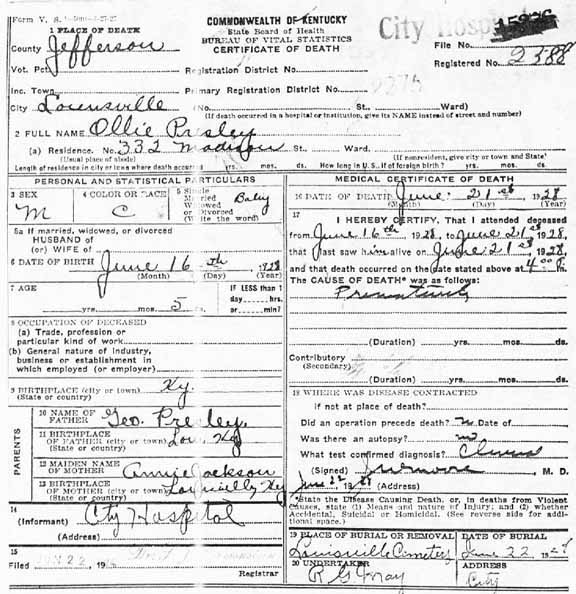 Form V. S.
COMMONWEALTH OF KENTUCKY
State Board of Health
BUREAU OF VITAL STATISTICS
CERTIFICATE OF DEATH
City Hospital
File No.
Registered No. 2388
1 PLACE OF DEATH
County Jefferson
Vot. Pct. Registration District No.
Inc. Town Primary Registration District No. 2275
City Louisville (No. St., Ward)
(If death occurred in a hospital or institution, give its NAME instead of street and number)
2 FULL NAME Ollie Presley
(a) Residence. No. 332 Madison St. Ward.
(Usual place of abode) (If nonresident, give city or town and State)
Length of residence in city or town where death occurred yrs. mos. ds. How long in U.S., if of foreign birth? yrs. mos. ds.
PERSONAL AND STATISTICAL PARTICULARS
3 SEX M
4 COLOR OR RACE C
5 Single Married Widowed or Divorced (Write the word) Baby
5a If married, widowed, or divorced
HUSBAND of
(or) WIFE of
6 DATE OF BIRTH June 16th 1928
(Month) (Day) (Year)
7 AGE yrs. mos. 5 ds.
IF LESS than 1
day hrs.
or min.
8 OCCUPATION OF DECEASED
(a) Trade, profession or
particular kind of work
(b) General nature of industry,
business or establishment in
which employed (or employer)
9 BIRTHPLACE (city or town) Ky.
(State or country)
PARENTS
10 NAME OF FATHER Geo. Presley
11 BIRTHPLACE OF FATHER (city or town) Lou. Ky
(State or country)
12 MAIDEN NAME OF MOTHER Annie Jackson
13 BIRTHPLACE OF MOTHER (city or town) Louisville, Ky
(State or country)
14
(Informant) City Hospital
(Address)
15
Filed 22, 19
Registrar
MEDICAL CERTIFICATE OF DEATH
16 DATE OF DEATH June 21st 1928
(Month) (Day) (Year)
17
I HEREBY CERTIFY, That I attended deceased
from June 16th, 1928, to June 21st 1928,
that I last saw him alive on June 21st 1928,
and that death occurred on the date stated above at 4:00 P.
The CAUSE OF DEATH* was as follows:
Prematurity
(Duration) yrs. mos. ds.
Contributory
(Secondary)
(Duration) yrs. mos. ds.
18 WHERE WAS DISEASE CONTRACTED
if not at place of death?
Did an operation precede death? No Date of
Was there an autopsy? no
What test confirmed diagnosis? Clinical
(Signed) M. D.
June 22 1928 (Address)
*State the Disease Causing Death, or, in deaths from Violent
Causes, state (1) Means and nature of Injury; and (2) whether
Accidental, Suicidal or Homicidal. (See reverse side for addi-
tional space.)
19 PLACE OF BURIAL OR REMOVAL DATE OF BURIAL
Louisville Cemetery June 22 192
20 UNDERTAKER ADDRESS
R G May City